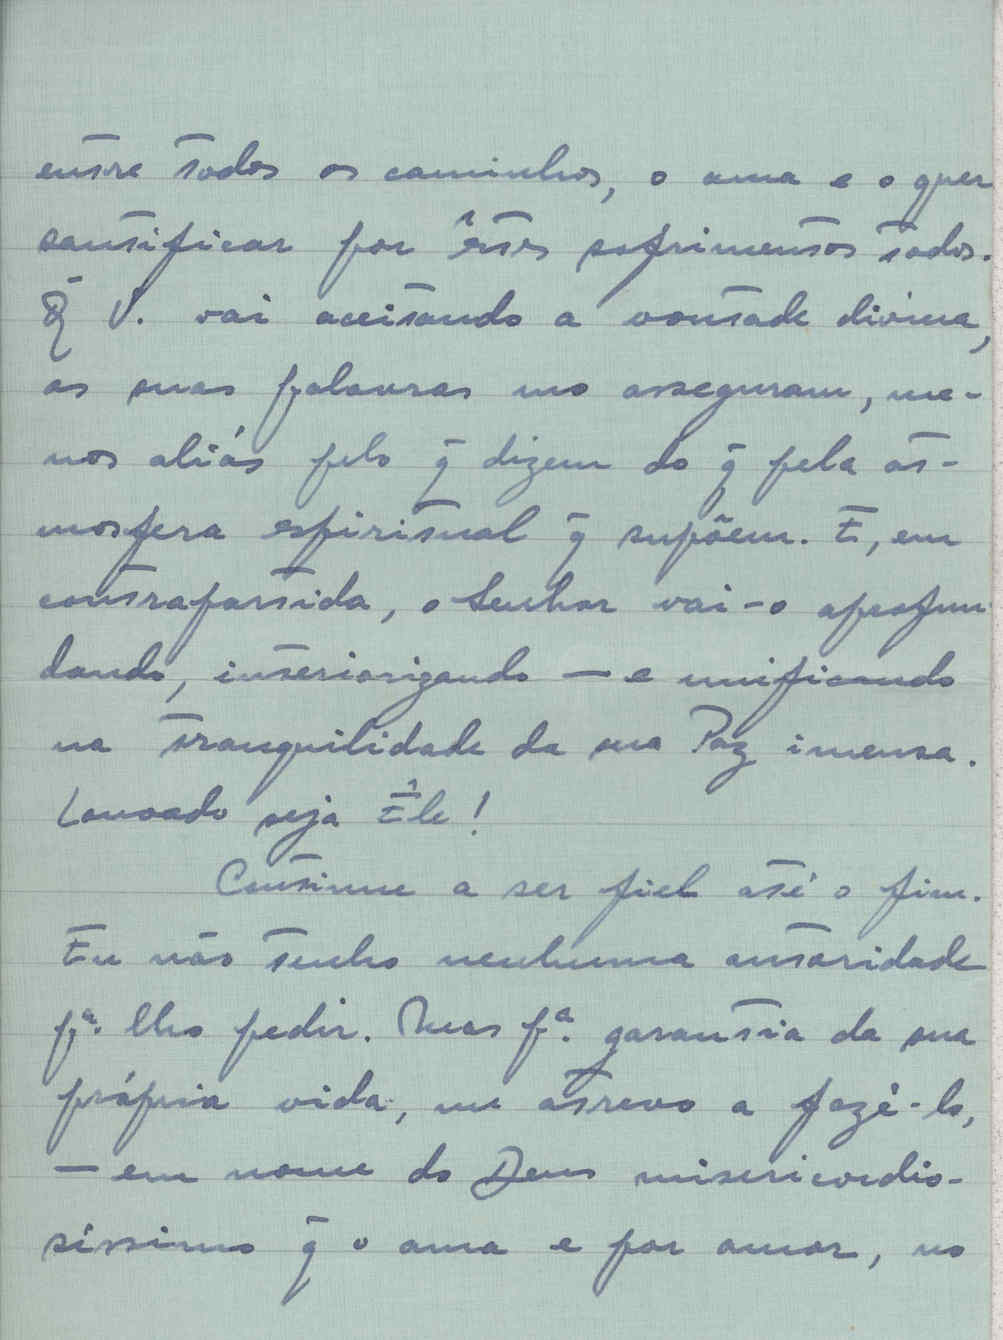 entre todos os caminhos, o ama e o quer
santificar por êsses sofrimentos todos.
Q̄ V. vai aceitando a vontade divina,
as suas palavras mo asseguram, me-
nos aliás pelo q̄ dizem do q̄ pela at-
mosfera espiritual q̄ supõem. E, em
contrapartida, o Senhor vai-o aprofun-
dando, interiorizando — e unificando
na tranquilidade da sua Paz imensa.
Louvado seja Êle!
Continue a ser fiel até o fim.
Eu não tenho nenhuma autoridade
pª. lho pedir. Mas pª. garantia da sua
própria vida, me atrevo a fazê-lo,
— em nome do Deus misericordio-
síssimo q̄ o ama e por amor, no